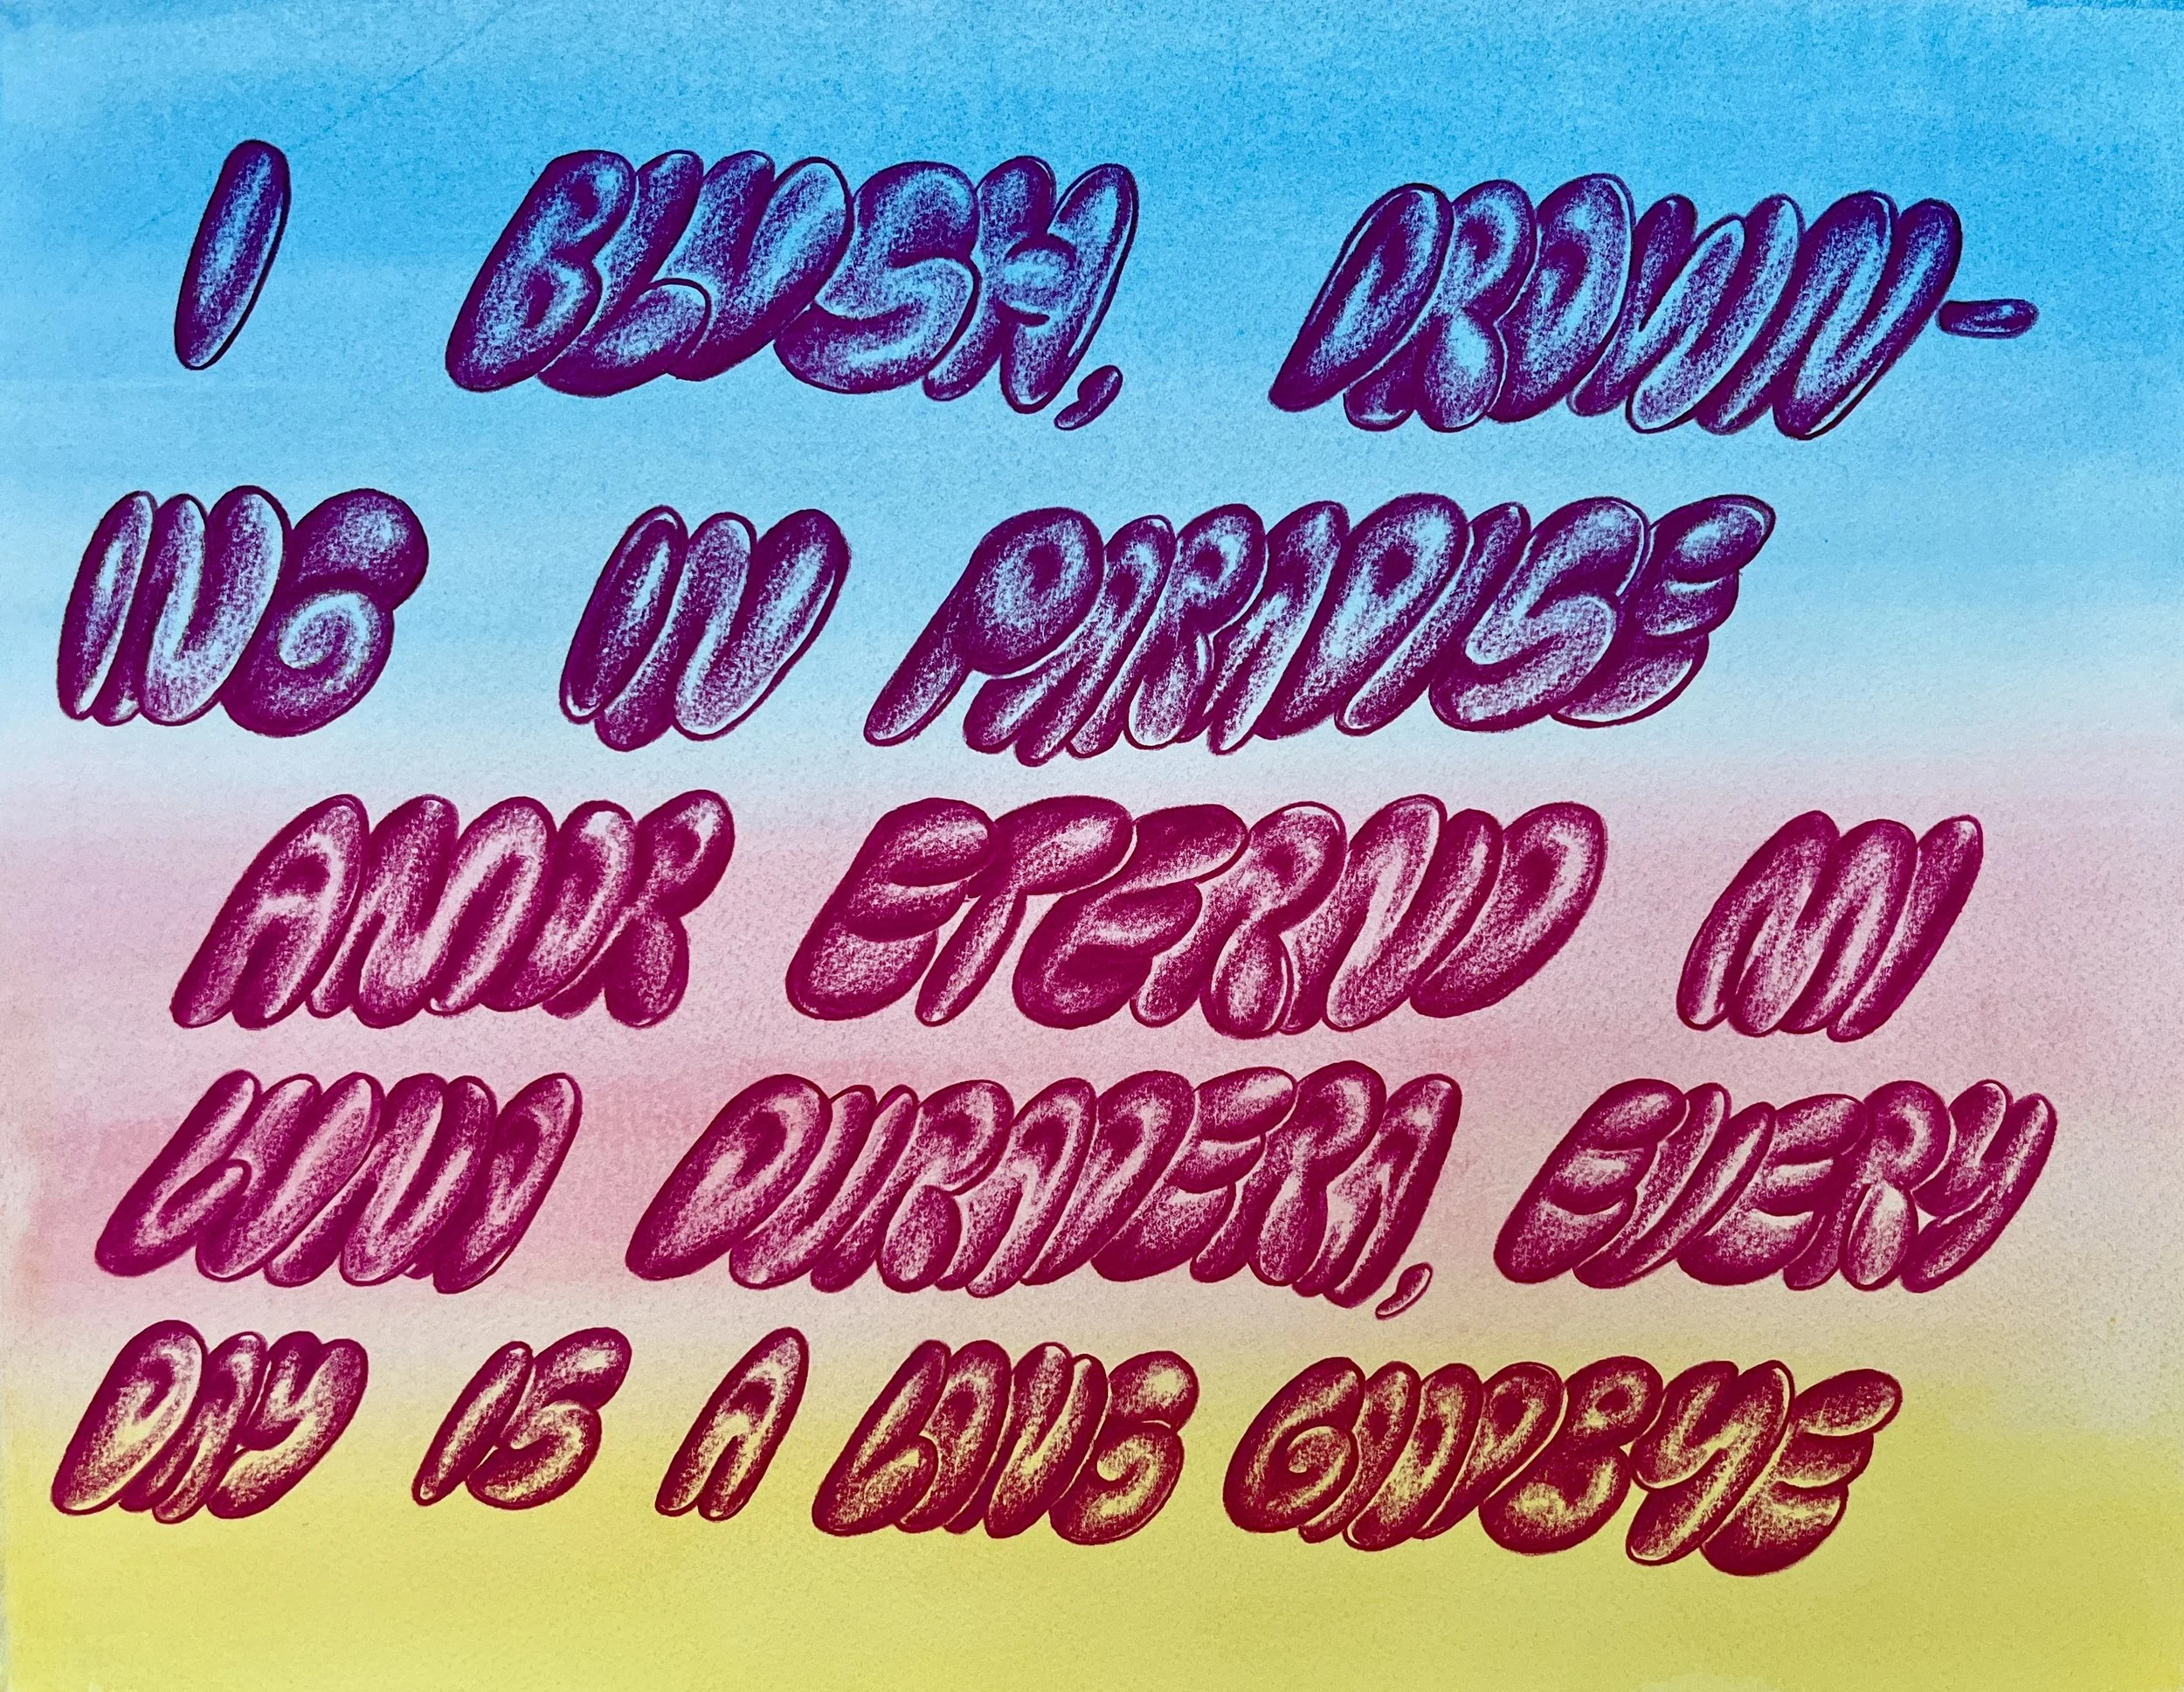 I BLUSH, DROWN-
ING IN PARADISE
AMOR ETERNO MI
LUNA DURADERA, EVERY
DAY IS A LONG GOODBYE